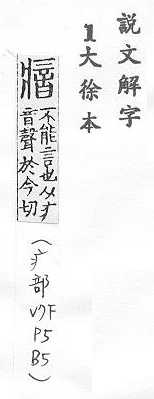 説文解字
1大徐本
瘖
不能言也从疒
音聲於今切
(疒部 V7F P5 B5)